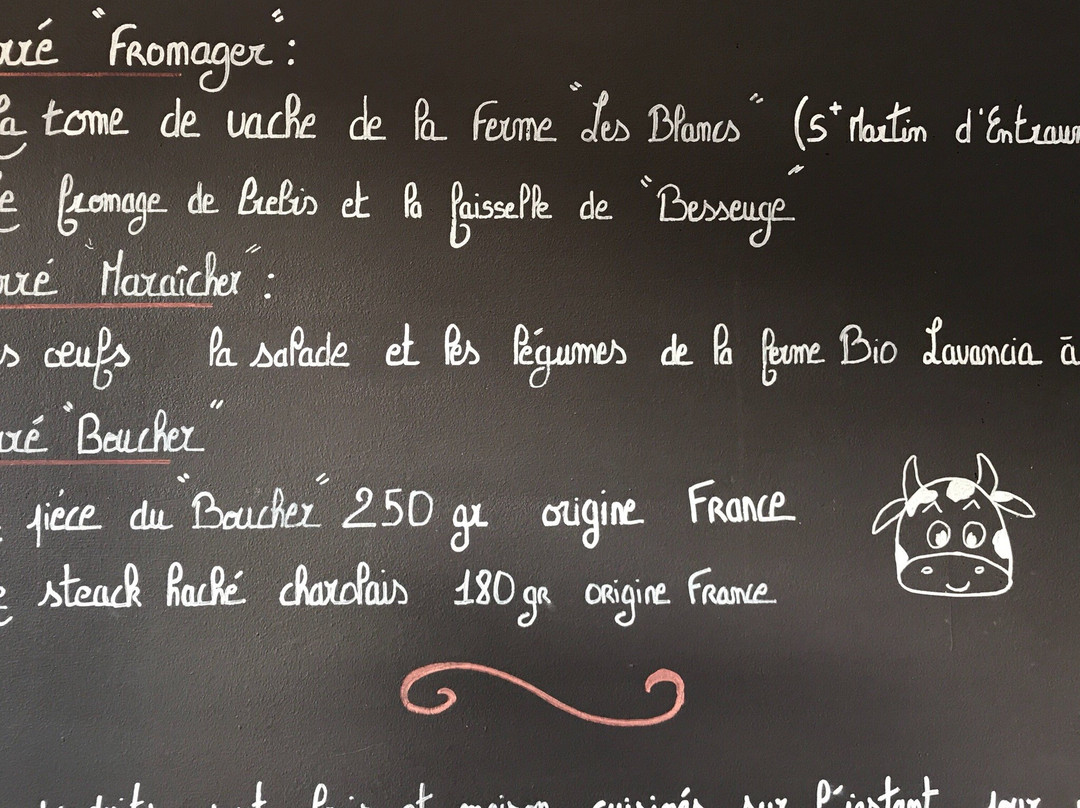 rré "Fromager" :
la tome de vache de la Ferme "Les Blancs" (St Martin d'Entraun
le fromage de brebis et la faisselle de "Besseuge"
rré "Maraîcher" :
s œufs la salade et les légumes de la ferme Bio Lavancia à
rré "Boucher"
pièce du "Boucher" 250 gr origine France
e steack haché charolais 180 gr origine France
maison cuisinés sur l'instant